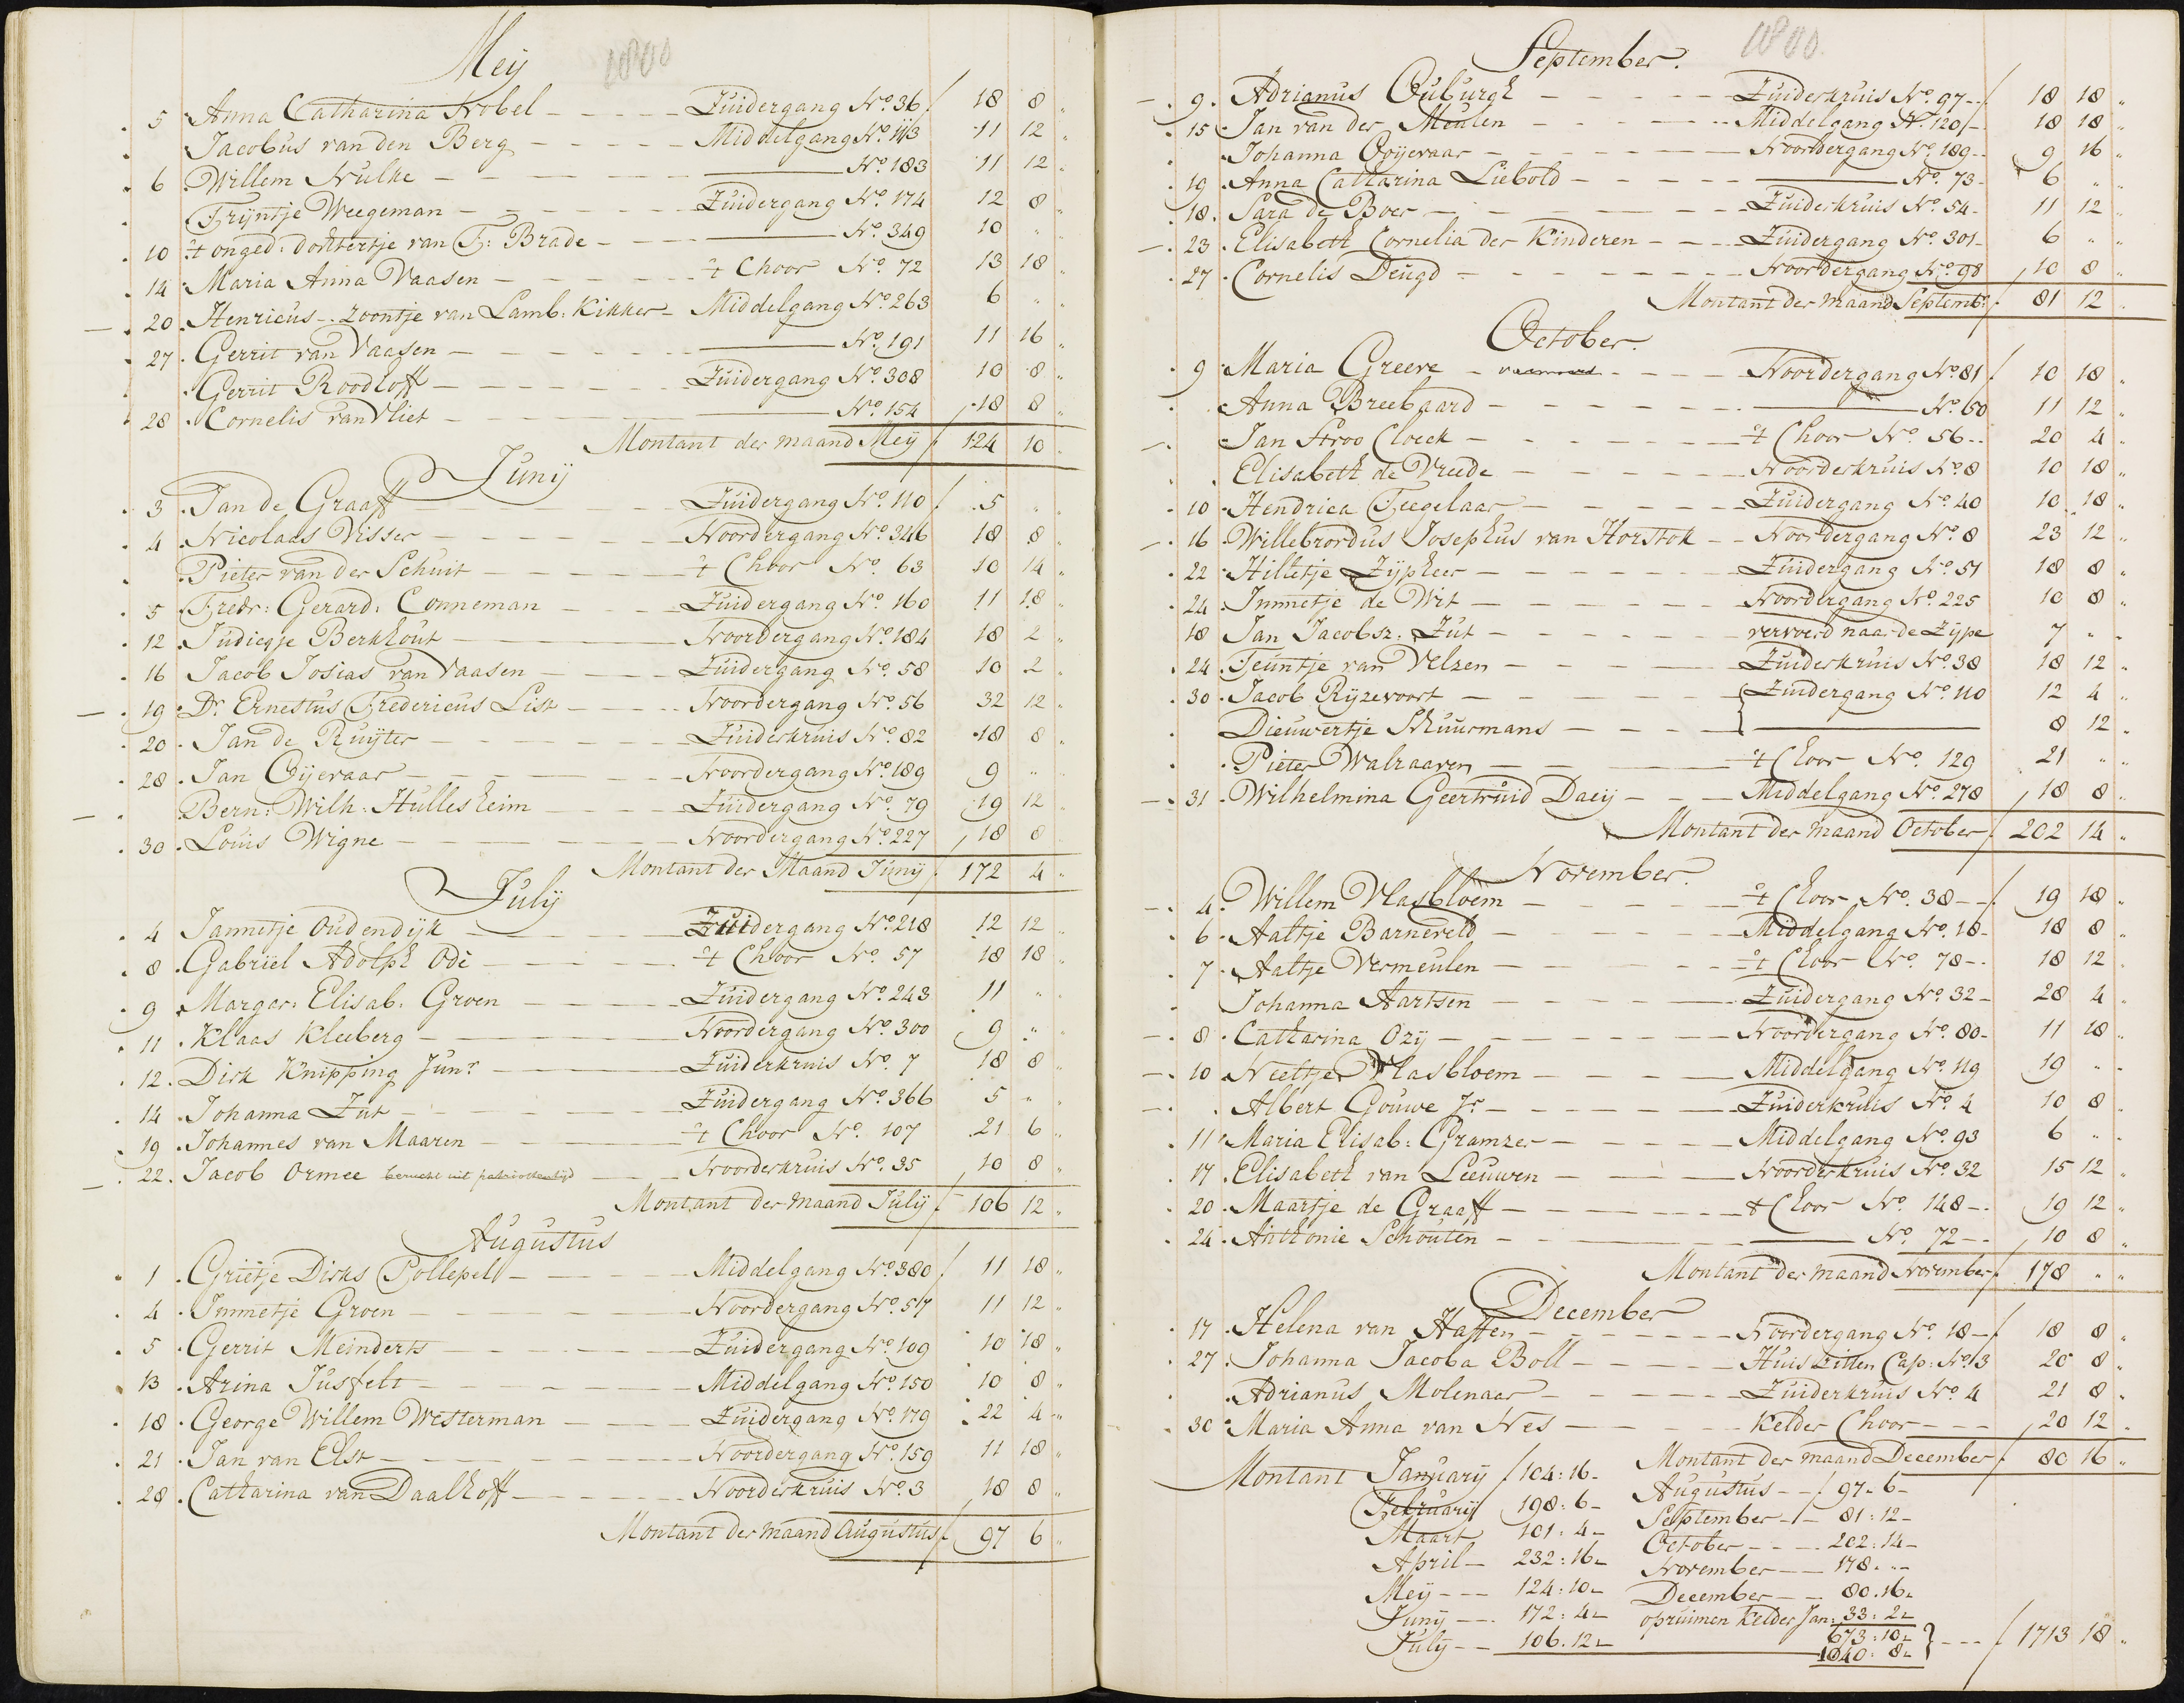 Meij 1800
5 Anna Catharina Nobel Zuidergang No. 36 f 18 8 „
Jacobus van den Berg Middelgang No. 113 11 12 „
6 Willem Nulke No. 183 11 12 „
Trijntje Weegeman Zuidergang No. 174 12 8 „
10 't onged: dochtertje van F: Brade No. 349 10 „ „
14 Maria Anna Vaasen 't Choor No. 72 13 18 „
20 Henricus zoontje van Lamb: Kikker Middelgang No. 263 6 „ „
27 Gerrit van Vaasen No. 191 11 16 „
Gerrit Roodloff Zuidergang No. 308 10 8 „
28 Cornelis van Vliet No. 154 18 8 „
Montant der maand Meij f 124 10 „
Junij
3 Jan de Graaff Zuidergang No. 110 f 5 „ „
4 Nicolaas Visser Noordergang No. 346 18 8 „
Pieter van der Schuit 't Choor No. 63 10 14 „
5 Fredr: Gerard: Conneman Zuidergang No. 160 11 18 „
12 Judiegje Berkhout Noordergang No. 184 18 2 „
16 Jacob Josias van Vaasen Zuidergang No. 58 10 2 „
19 Dr. Ernestus Fredericus List Noordergang No. 56 32 12 „
20 Jan de Ruijter Zuiderkruis No. 82 18 8 „
28 Jan Oijevaar Noordergang No. 189 9 „
Bern: Wilh: Hullesheim Zuidergang No. 79 19 12 „
30 Louis Wigne Noordergang No. 227 18 8
Montant der Maand Junij f 172 4 „
Julij
4 Jannetje Oudendijk Zuidergang No. 218 12 12 „
8 Gabriel Adolph Odé 't Choor No. 57 18 18 „
9 Margar: Elisab: Groen Zuidergang No. 243 11 „ „
11 Klaas Kleeberg Noordergang No. 300 9 „ „
12 Dirk Knipping Junr. Zuiderkruis No. 7 18 8 „
14 Johanna Zut Zuidergang No. 366 5 „ „
19 Johannes van Maaren 't Choor No. 107 21 6 „
22 Jacob Ormee berucht uit patriottentijd Noorderkruis No. 35 10 8 „
Montant der maand Julij f 106 12 „
Augustus
1 Grietje Dirks Pollepel Middelgang No. 380 f 11 18 „
4 Immetje Groen Noordergang No. 517 11 12 „
5 Gerrit Meinderts Zuidergang No. 109 10 18 „
13 Arina Jusfelt Middelgang No. 150 10 8 „
18 George Willem Westerman Zuidergang No. 179 22 4 „
21 Jan van Elst Noordergang No. 159 11 18 „
28 Catharina van Daalhoff Noorderkruis No. 3 18 8 „
Montant der maand Augustus f 97 6 „
September. 1800.
9 Adrianus Ouburgh Zuiderkruis No. 97 f 18 18 „
15 Jan van der Meulen Middelgang No. 120 18 18 „
Johanna Ooijevaar Noordergang No. 189 9 16 „
19 Anna Catharina Liebold No. 73 6 „ „
18 Sara de Boer Zuiderkruis No. 54 11 12 „
23 Elisabeth Cornelia der Kinderen Zuidergang No. 301 6 „ „
27 Cornelis Deugd Noordergang No. 98 10 8 „
Montant der maand Septemb: f 81 12 „
October.
9 Maria Greeve Noordergang No. 81 f 10 18 „
Anna Breebaard No. 60 11 12 „
Jan Stroo Cloeck 't Choor No. 56 20 4 „
Elisabeth de Vreede Noorderkruis No. 8 10 18 „
10 Hendrica Teegelaar Zuidergang No. 40 10 18 „
16 Willebrordus Josephus van Horstok Noordergang No. 8 23 12 „
22 Hilletje Zijpheer Zuidergang No. 51 18 8 „
24 Immetje de Wit Noordergang No. 225 10 8 „
18 Jan Jacobsz: Zut vervoerd naar de Zijpe 7 „ „
24 Teuntje van Velzen Zuiderkruis No. 38 18 12 „
30 Jacob Rijzevoort Zuidergang No. 110 12 4 „
Dieuwertje Schuurmans 8 12 „
Pieter Walraaven 't Choor No. 129 21 „ „
31 Wilhelmina Geertruid Daeij Middelgang No. 278 18 8 „
Montant der maand October f 202 14 „
November.
4 Willem Vlasbloem 't Choor No. 38 f 19 18 „
6 Aaltje Barneveld Middelgang No. 18 18 8 „
7 Aaltje Vermeulen 't Choor No. 78 18 12 „
Johanna Aartsen Zuidergang No. 32 28 4 „
8 Catharina Ozij Noordergang No. 80 11 18 „
10 Neeltje Vlasbloem Middelgang No. 119 19 „ „
Albert Gouwe Jr Zuiderkruis No. 4 10 8 „
11 Maria Elisab: Gramzer Middelgang No. 93 6 „ „
17 Elisabeth van Leeuwen Noorderkruis No. 32 15 12 „
20 Maartje de Graaff 't Choor No. 148 19 12 „
24 Anthonie Schouten No. 72 10 8 „
Montant der maand November f 178 „ „
December
17 Helena van Haften Noordergang No. 18 f 18 8 „
27 Johanna Jacoba Boll Huiszitten Cap: No. 3 20 8 „
Adrianus Molenaar Zuiderkruis No. 4 21 8 „
30 Maria Anna van Nes Kelder Choor 20 12 „
Montant der maand December f 80 16 „
Montant Januarij f 104:16 Augustus f 97 „ 6
Februarij 198:6 September 81:12
Maart 101:4 October 202:14
April 232:16 November 178 „ „
Meij 124:10 December 80.16
Junij 172:4 opruimen Kelder Jan: 33:2
Julij 106.12 673:10
1040:8 } f 1713 18 „